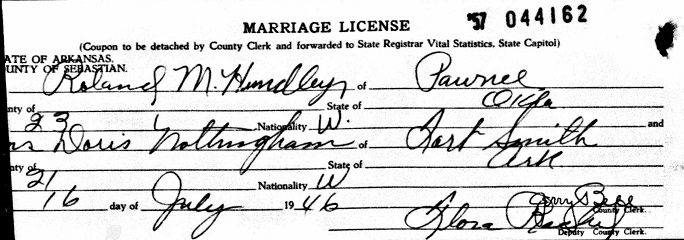 MARRIAGE LICENSE '57 044162
(Coupon to be detached by County Clerk and forwarded to State Registrar Vital Statistics, State Capitol)
ATE OF ARKANSAS,
UNTY OF SEBASTIAN.
Roland M. Hundley of Pawnee
nty of State of Okla
23 Nationality W. and
Doris Nottingham of Fort Smith
nty of State of Ark
21 Nationality W
16 day of July 1946
County Clerk.
Flora
Deputy County Clerk.